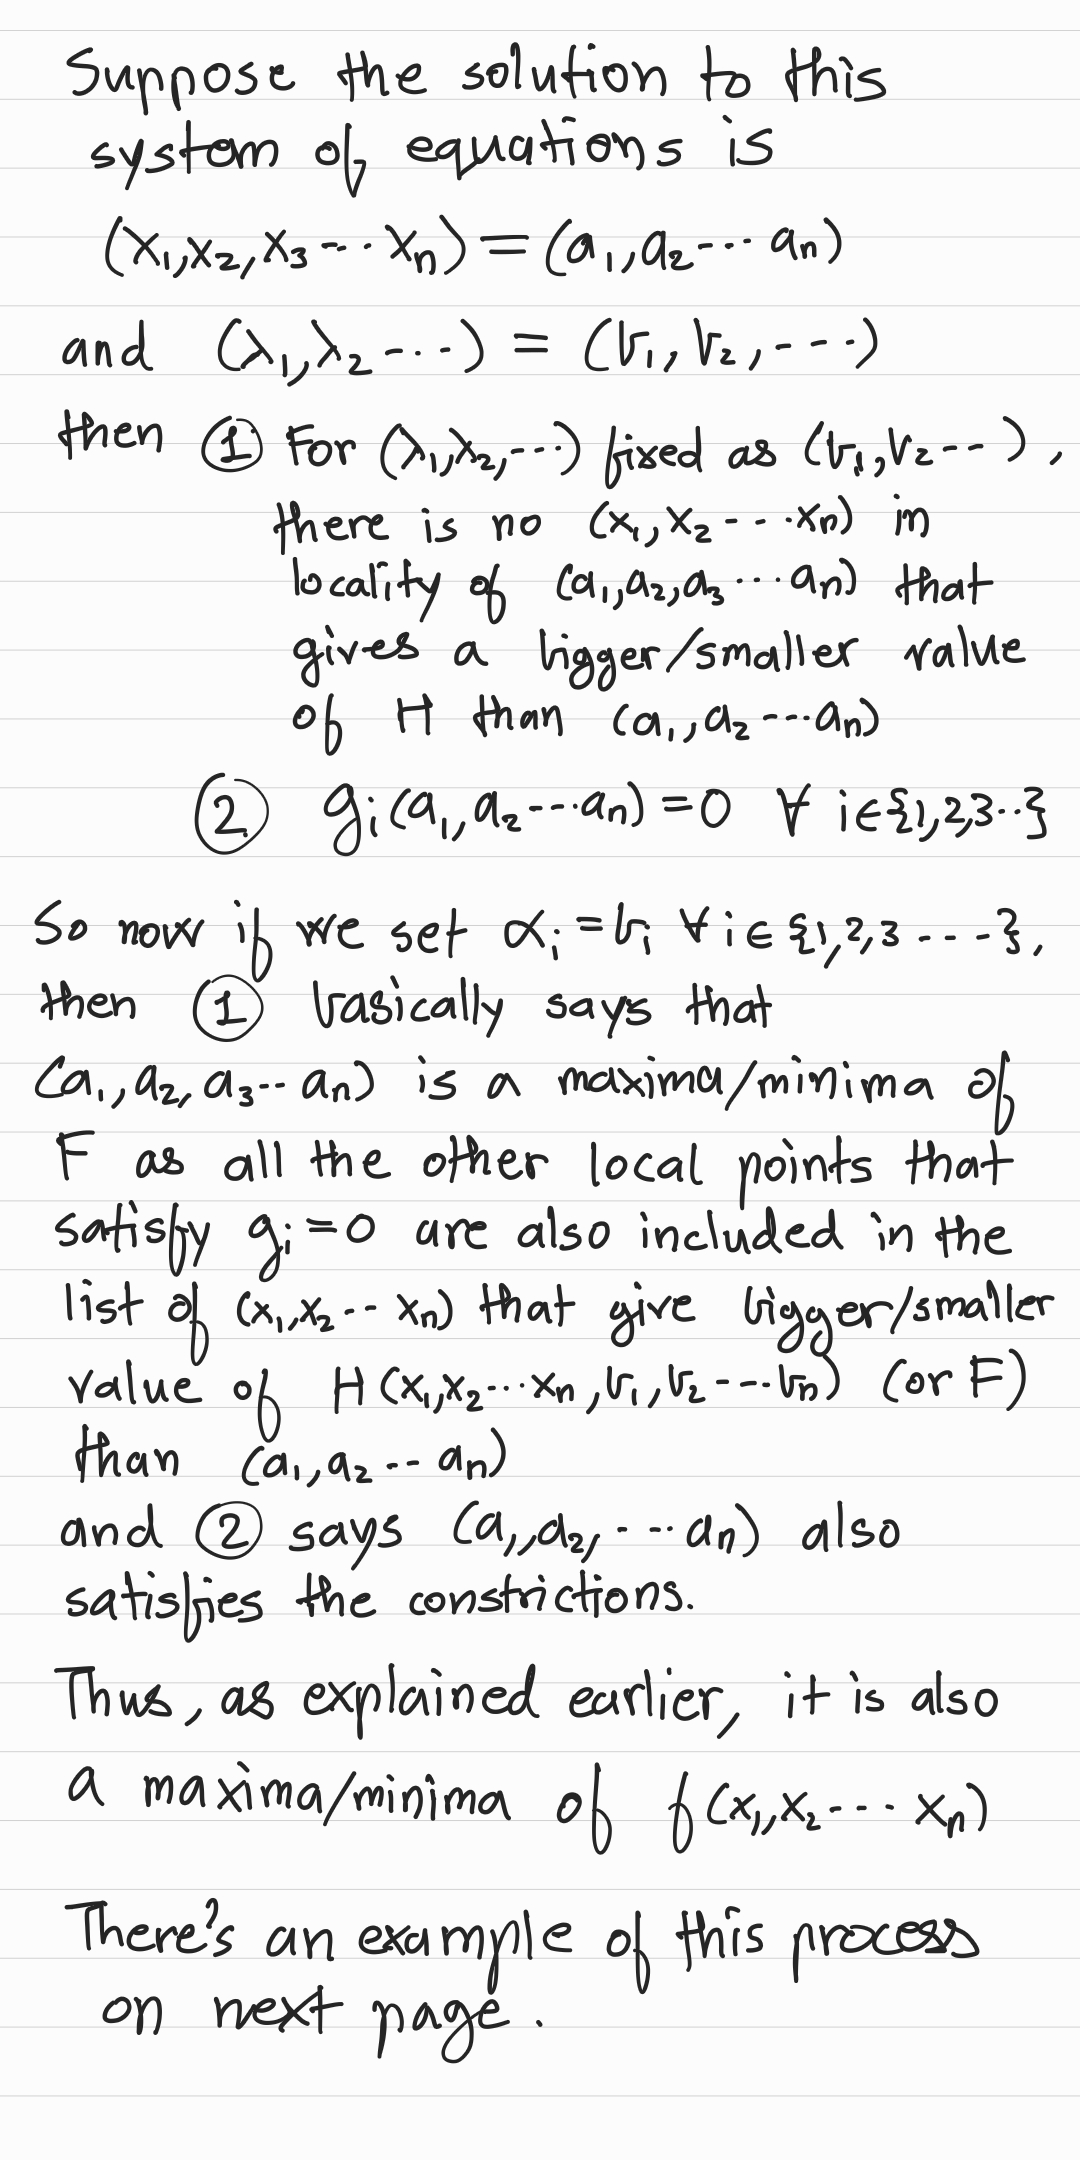 Suppose the solution to this
system of equations is
(x₁,x₂,x₃---xₙ) = (a₁,a₂----aₙ)
and (λ₁,λ₂----) = (b₁,b₂,----)
then ① For (λ₁,λ₂,---) fixed as (b₁,b₂---),
there is no (x₁,x₂----xₙ) in
locality of (a₁,a₂,a₃----aₙ) that
gives a bigger/smaller value
of H than (a₁,a₂----aₙ)
② gᵢ(a₁,a₂----aₙ)=0 ∀ i∈{1,2,3--}
So now if we set αᵢ=bᵢ ∀ i∈{1,2,3----},
then ① basically says that
(a₁,a₂,a₃--aₙ) is a maxima/minima of
F as all the other local points that
satisfy gᵢ=0 are also included in the
list of (x₁,x₂--xₙ) that give bigger/smaller
value of H(x₁,x₂---xₙ,b₁,b₂----bₙ) (or F)
than (a₁,a₂--aₙ)
and ② says (a₁,a₂,----aₙ) also
satisfies the constrictions.
Thus, as explained earlier, it is also
a maxima/minima of f(x₁,x₂----xₙ)
There's an example of this process
on next page.